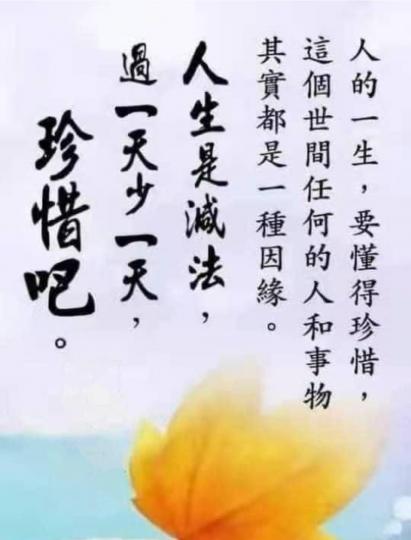 人的一生，要懂得珍惜，
這個世間任何的人和事物
其實都是一種因緣。
人生是減法，
過一天少一天，
珍惜吧。